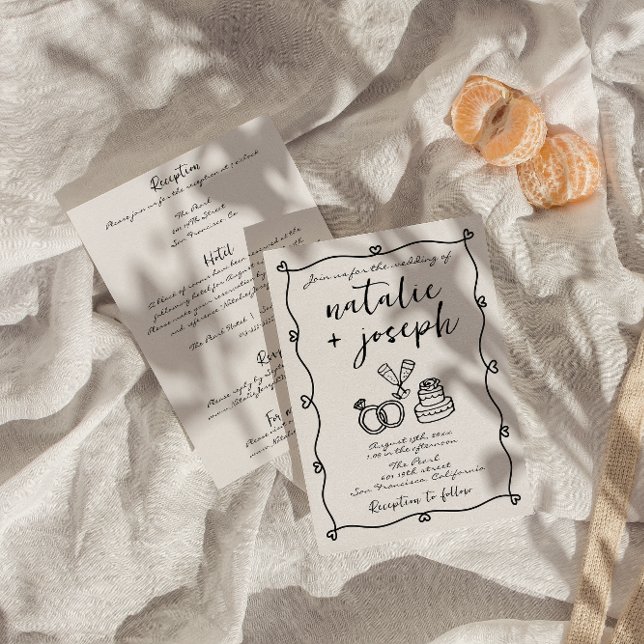 Reception
Please join us for the reception at 5 o'clock
The Pearl
601 19th Street
San Francisco, Ca
Hotel
A block of rooms have been reserved at the
following hotel for August
Please make your reservation by
and reference
The Pearl Hotel
Please reply by
www.
Join us for the wedding of
natalie
+ joseph
August 15th, 20xx
1:00 in the afternoon
The Pearl
601 19th street
San Francisco, California
Reception to follow